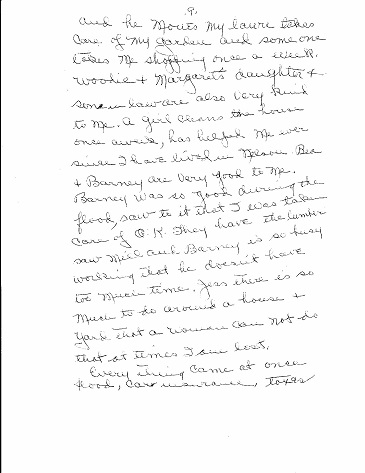 9,
and he Mows my lawn takes
Care of My garden and some one
takes Me shopping once a week.
Woodie + Margarets daughter +
son in law are also very kind
to Me. A girl cleans the house
once a week, has helped Me ever
since I have lived in Nelson. Bea
+ Barney are very good to Me.
Barney was so good during the
flood, saw to it that I was taken
care of O.K. They have the lumber
saw Mill and Barney is so busy
working that he doesn't have
too Much time. Jess there is so
Much to do around a house +
yard that a woman can not do
that at times I am lost.
Every thing came at once
flood, Car insurance, taxes